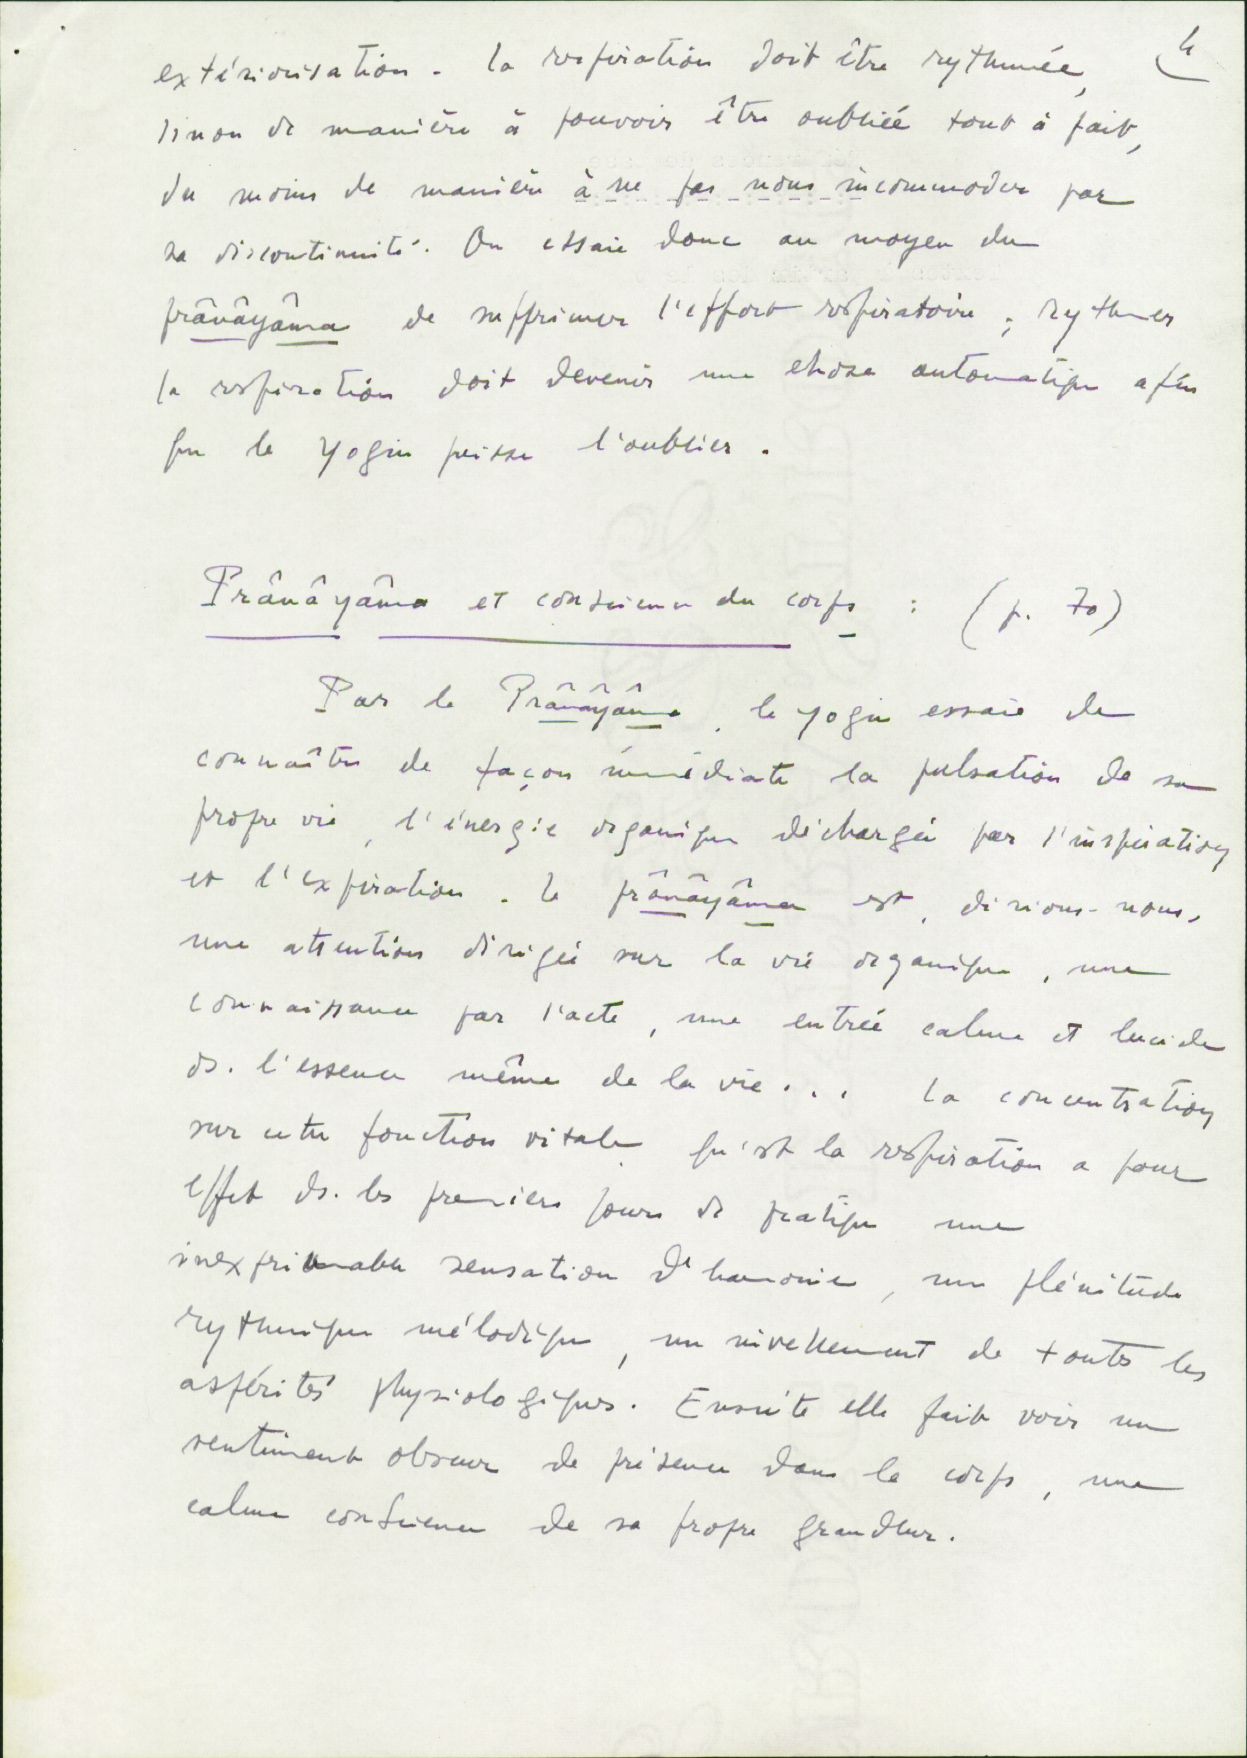 4
extériorisation. La respiration doit être rythmée,
sinon de manière à pouvoir être oubliée tout à fait,
du moins de manière à ne pas nous incommoder par
sa discontinuité. On essaie donc au moyen du
prânâyâma de supprimer l'effort respiratoire ; rythmer
la respiration doit devenir une chose automatique afin
que le yogin puisse l'oublier.
Prânâyâma et conscience du corps : (p. 70)
Par le Prânâyâma, le yogin essaie de
connaître de façon immédiate la pulsation de sa
propre vie, l'énergie organique déchargée par l'inspiration
et l'expiration. Le prânâyâma est, dirions-nous,
une attention dirigée sur la vie organique, une
connaissance par l'acte, une entrée calme et lucide
ds. l'essence même de la vie... La concentration
sur cette fonction vitale qu'est la respiration a pour
effet ds. les premiers jours de pratique une
inexprimable sensation d'harmonie, une plénitude
rythmique mélodique, un nivellement de toutes les
aspérités physiologiques. Ensuite elle fait voir un
sentiment obscur de présence dans le corps, une
calme conscience de sa propre grandeur.